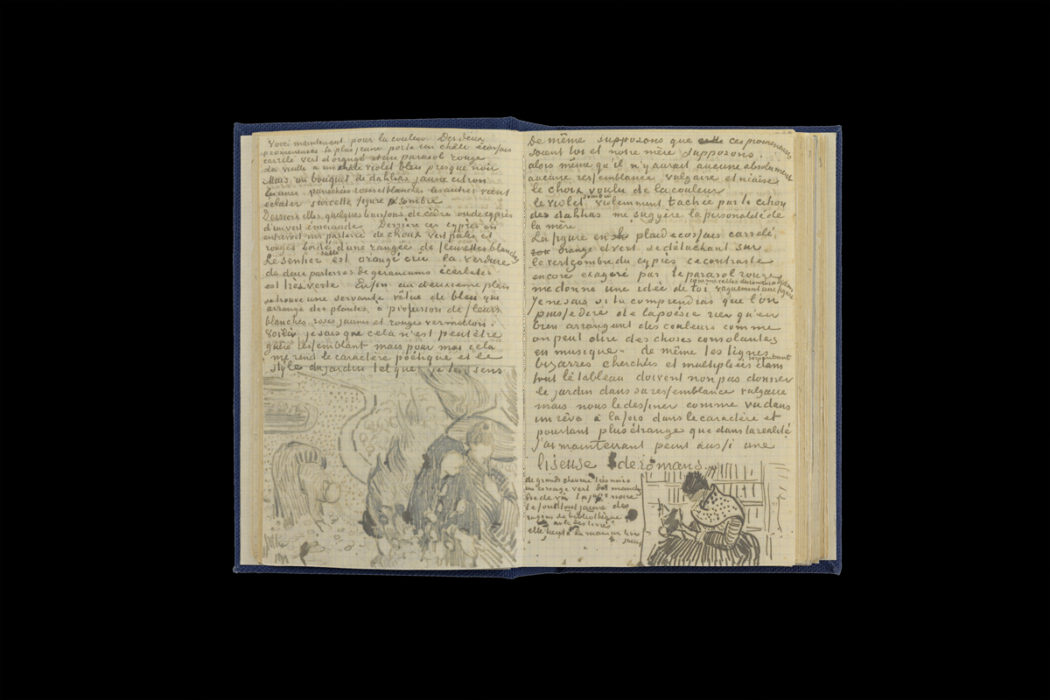 Voici maintenant pour la couleur. Des deux
promeneuses la plus jeune porte un châle écossais
carrelé vert et orangé et un parasol rouge
la vieille a un châle violet bleu presque noir
Mais un bouquet de dahlias jaune citron
les autres panachés roses et blanches
éclater sur cette figure sombre
Derrière elles quelques buissons de cèdre ou de cyprès
d'un vert émeraude Derrière ces cyprès on
entrevoit un parterre de choux verts pâles et
rouges bordé d'une rangée de fleurettes blanches
Le sentier sablé est orangé cru la verdure
de deux parterres de géraniums écarlates
est très verte Enfin au deuxième plan
se trouve une servante vêtue de bleu qui
arrange des plantes à profusion de fleurs
blanches roses jaunes et rouges vermillons.
Voilà je sais que cela n'est peut être
guère ressemblant mais pour moi cela
me rend le caractère poétique et le
style du jardin tel que je les sens
De même supposons que ces promeneuses
soient toi et notre mère supposons
alors même qu'il n'y aurait aucune absolument
aucune ressemblance vulgaire et niaise
le choix voulu de la couleur
le violet sombre violemment tachée par le citron
des dahlias me suggère la personalité de
la mère
La figure en plaid ecossais carrelé
orange et vert se détachant sur
le vert sombre du cyprès ce contraste
encore exagéré par le parasol rouge
me donne une idée de toi vaguement une figure
comme celles des romans de Dickens
Je ne sais si tu comprendras que l'on
puisse dire de la poésie rien qu'en
bien arrangeant des couleurs comme
on peut dire des choses consolantes
en musique – de même les lignes
bizarres cherchées et multipliées serpentant dans
tout le tableau doivent non pas donner
le jardin dans sa ressemblance vulgaire
mais nous le dessiner comme vu dans
un rêve à la fois dans le caractère et
pourtant plus étrange que dans la réalité
j'ai maintenant peint aussi une
liseuse de romans.
de grands cheveux très noirs
un corsage vert les manches
lie de vin la jupe noire
le fond tout jaune des
rayons de bibliothèque
avec des livres
elle tient dans ses mains un livre
jaune